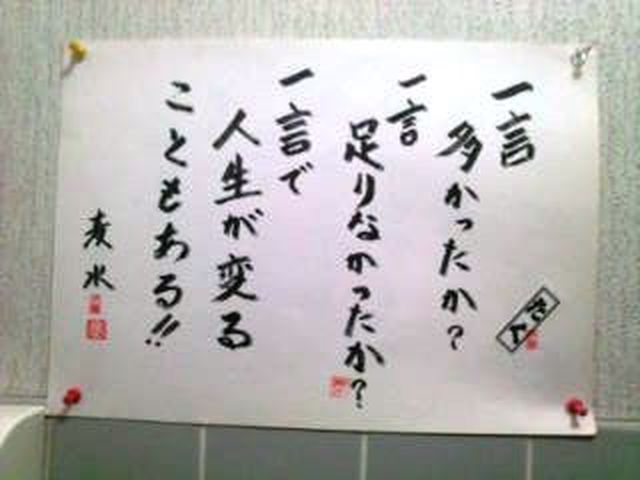 一言
多かったか?
一言
足りなかったか?
一言で
人生が変る
こともある!!
麦水